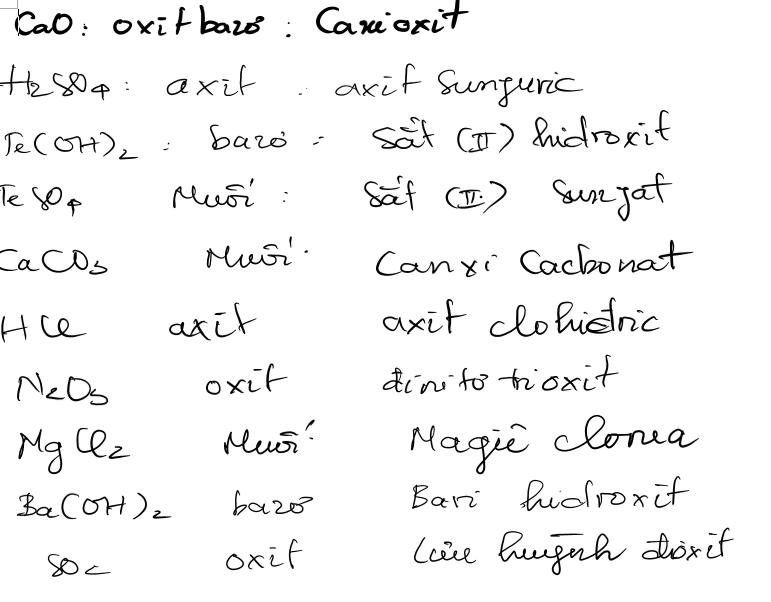 CaO: oxit bazơ: Canxi oxit
H2SO4: axit. axit Sunfuric
Fe(OH)2: bazơ: Sắt (II) hidroxit
FeSO4 Muối: Sắt (II) Sunfat
CaCO3 Muối: Canxi Cacbonat
HCl axit axit clohidric
N2O3 oxit đinitơ trioxit
MgCl2 Muối Magiê clorua
Ba(OH)2 bazơ Bari hidroxit
SO2 oxit Lưu huỳnh đioxit